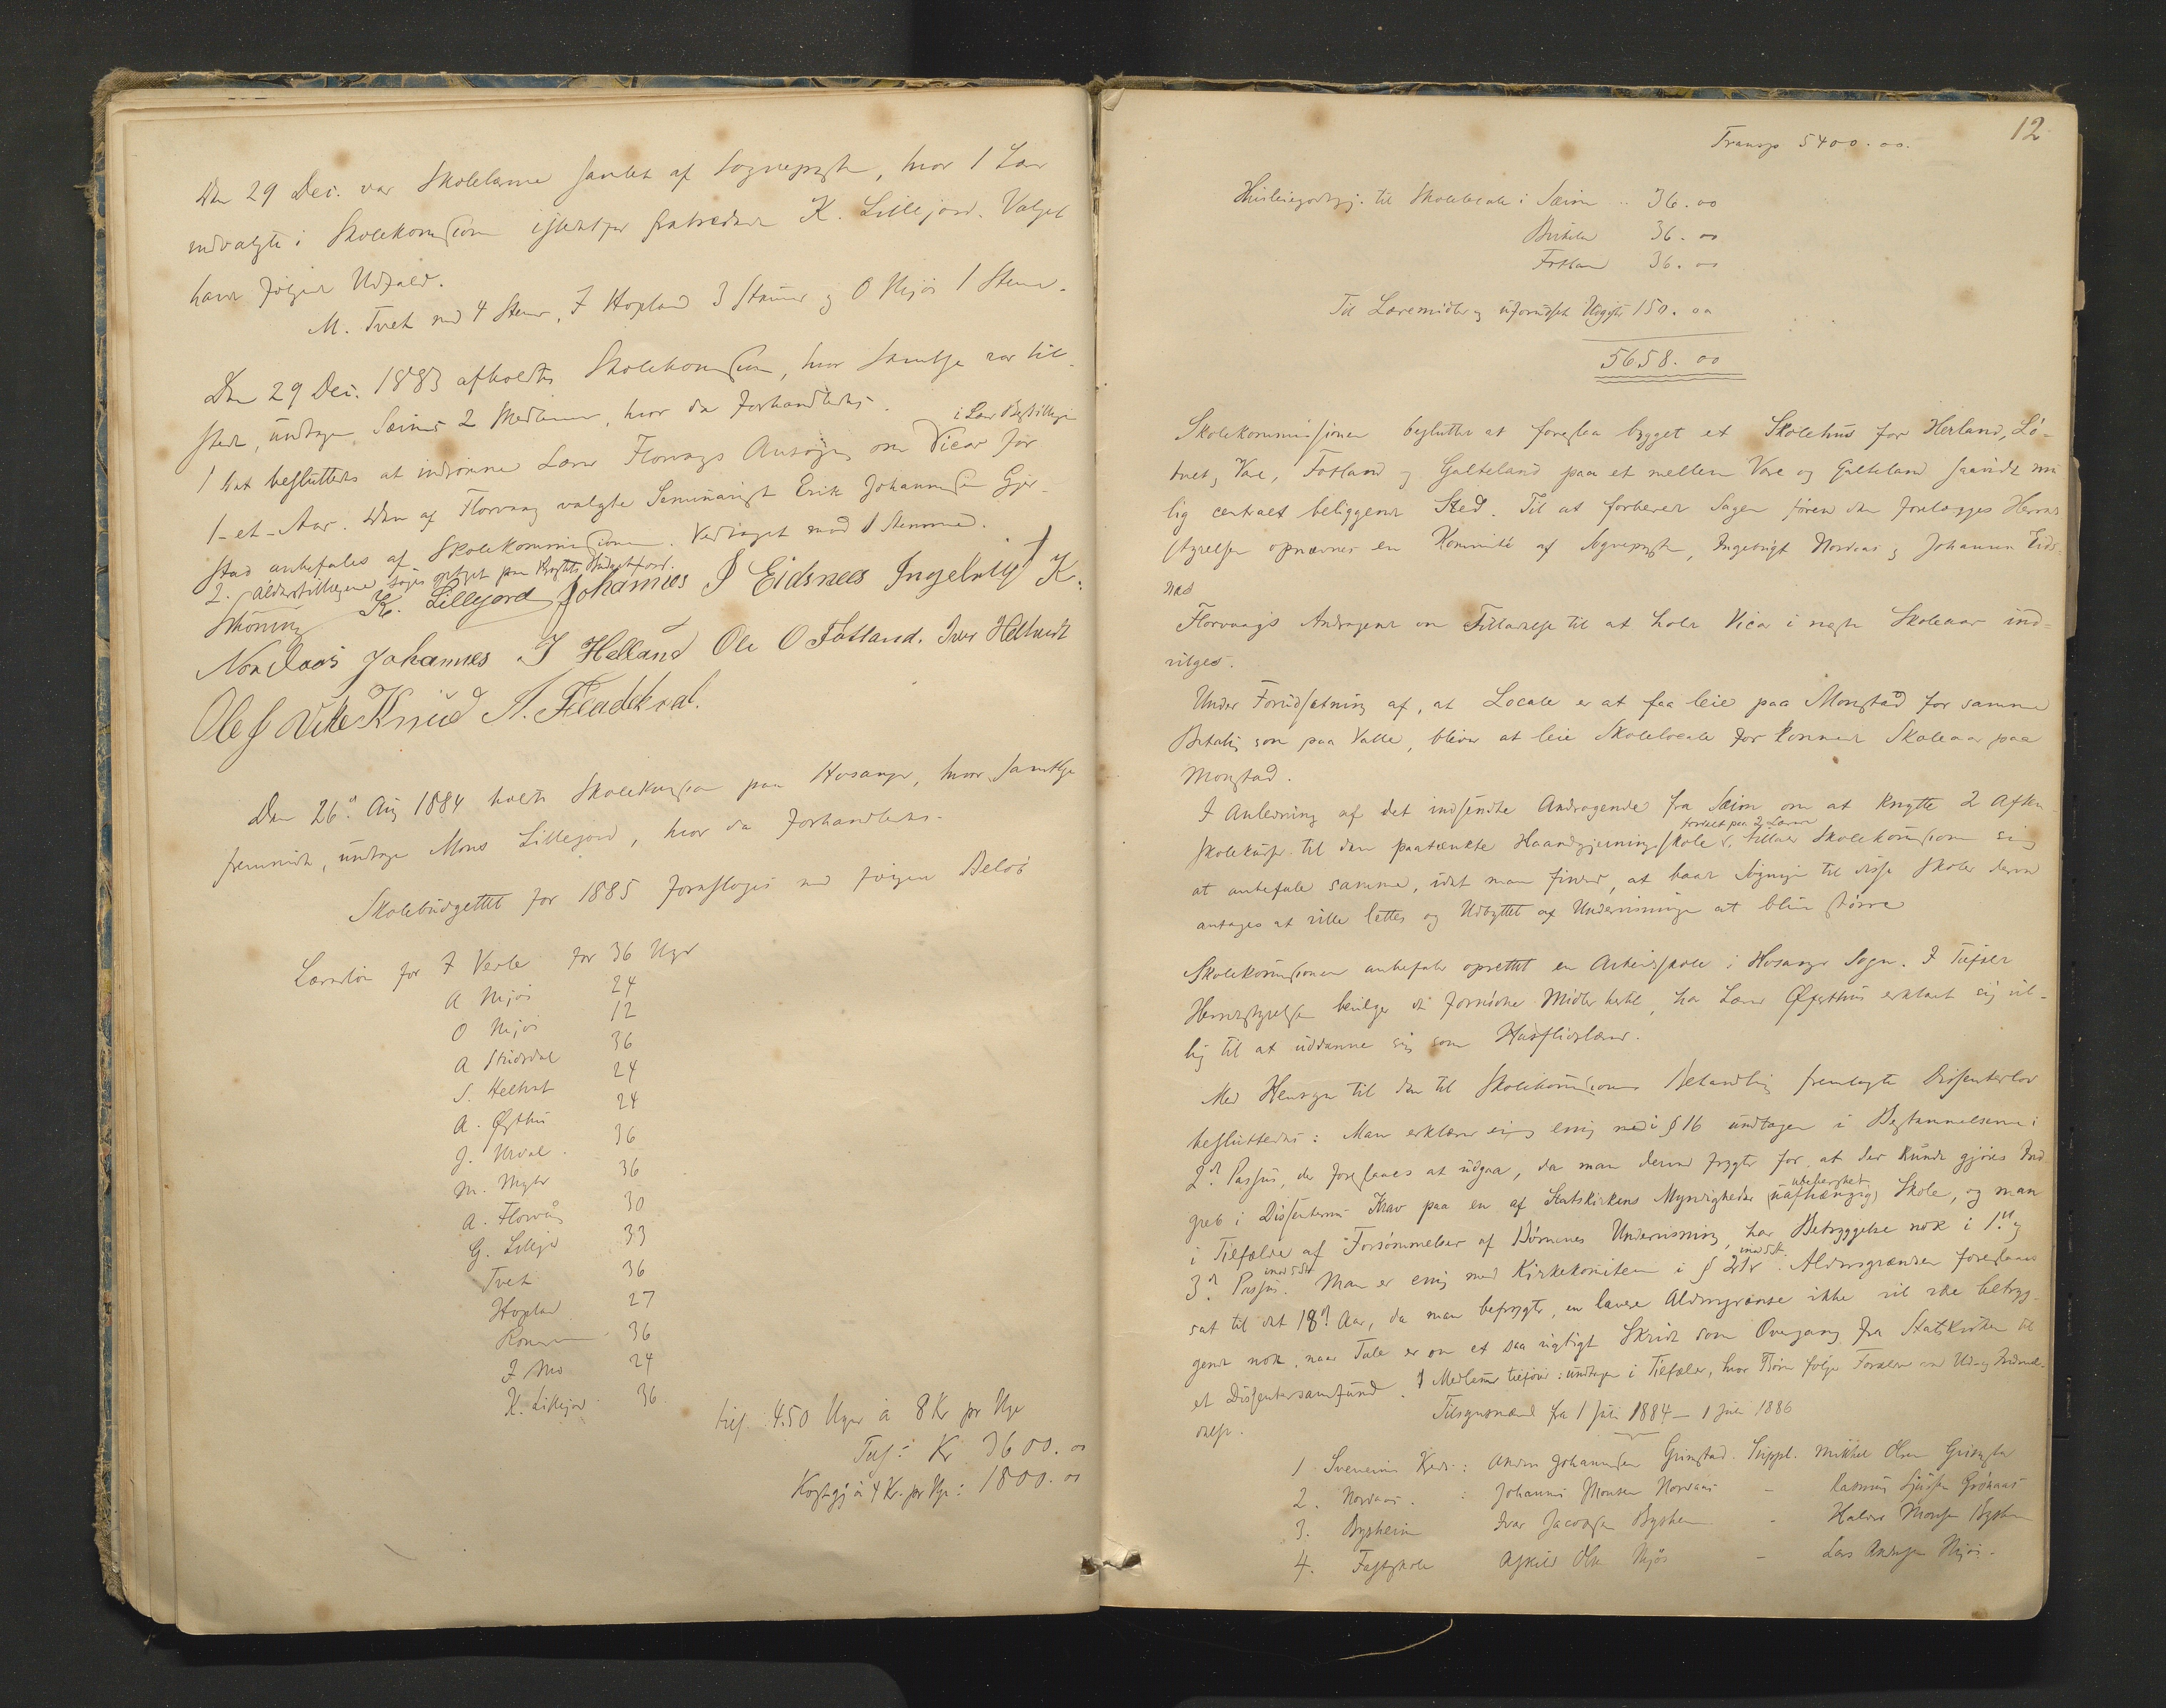 Den 29 Dec. var Skolelærerne samlet af Sognepresten, hvor 1 Lærer
indvalgtes i Skolekommissionen istedetfor fratrædende K. Lillejord. Valget
havde følgende Udfald.
M. Tveit med 4 Stemmer, I Hopland 3 Stemmer og O Mjøs 1 Stemme.
Den 29 Dec. 1883 afholdtes Skolekommission, hvor Samtlige var til-
stede, undtagen Sæims 2 Medlemmer, hvor da forhandledes.
i Lærerbestillingen
1 Det besluttedes at indrømme Lærer Florvaags Ansøgning om Vicar for
1-et-Aar. Den af Florvaag valgte Seminarist Erik Johannessen Gjer-
stad anbefales af Skolekommissionen. Vedtaget mod 1 Stemme.
2. Alderstillægene søges
K. Lillejord Johannes J Eidsnes Ingebrigt K.
Nordaas Johannes J Helland Ole O Fotland. Iver Helltveit
Ole J Vike Knud A. Fladekval.
Den 26de Aug 1884 holdtes Skolekommission paa Hosanger, hvor Samtlige
fremmødte, undtagen Mons Lillejord, hvor da forhandledes.
Skolebudgettet for 1885 foresloges med følgende Beløb
Lærerløn for I Verle for 36 Uger
A Mjøs 24
O Mjøs 12
A Stüdsdal 36
S. Heltveit 24
A. Øysthus 24
J. Urdal 36
M. Myhr 36
A. Florvåg 30
G. Lillejd 33
Tveit 36
Hopland 27
Romarheim 36
I Mo 24
K. Lillejord 36
tils. 450 Uger à 8 Kr pr Uge
Tils: Kr 3600.00
Kostgj à 4 Kr. pr Uge: 1800.00
12
Transp 5400.00.
Huslejegodtgj. til Skolelocale i Sæim 36.00
Birkeland 36.00
Fotland 36.00
Til Læremidler og uforudseete Udgifter 150.00
5658.00
Skolekommissionen beslutter at foreslaa bygget et Skolehus for Herland, Lø-
tveit, Vae, Fotland og Galteland paa et mellem Vae og Galteland saavidt mu
lig centralt beliggende Sted. Til at forberede Sagen førend den forelægges Herreds
styrelsen opnævnes en Komité af Sognepresten, Ingebrigt Nordaas og Johannes Eids-
nes
Florvaags Andragende om Tilladelse til at holde Vicar i næste Skoleaar ind-
vilges.
Under Forudsætning af, at Locale er at faa leie paa Mongstad for samme
Betaling som paa Valle, bliver at leie Skolelocale for kommende Skoleaar paa
Mongstad.
I Anledning af det indsendte Andragende fra Sæim om at knytte 2 Aften
fordelt paa 2 Lærere
skolekurser til den paatænkte Haandgjerningsskole, tillader Skolekommissionen sig
at anbefale samme, idet man finder, at baade Søgningen til disse Skoler derved
antages at ville lettes og Udbyttet af Undervisningen at blive større
Skolekommissionen anbefaler oprettet en Arbeidsskole i Hosanger Sogn. I Tilfælde
Herredsstyrelsen bevilger de fornødne Midler hertil, har Lærer Øysthus erklæret sig vil-
lig til at uddanne sig som Husflidslærer.
Med Hensyn til den til Skolekommissionens Behandling fremlagte Dissenterlov
besluttedes: Man erklærer sig enig med i § 16 undtagen i Bestemmelserne i
2de Passus, der foreslaaes at udgaa, da man derved frygter for at der kunde gjøres Ind
greb i Dissenternes Krav paa en af Statskirkens Myndigheder uafhængig Skole, og man
i Tilfælde af Forsømmelser af Børnenes Undervisning har Betryggelse nok i 1ste og
3de Passus. Man er enig med Kirkekomiteen i § 2. Aldersgrændsen foreslaaes
sat til det 18de Aar, da man befrygter, en lavere Aldersgrændse ikke vil være betryg-
gende nok, naar Tale er om et saa vigtigt Skridt som Overgang fra Statskirken til
et Dissentersamfund. 1 Medlem tilføier: undtagen i Tilfælde, hvor Børn følge Forældre ved Ud- og Indmel-
delse.
Tilsynsmænd fra 1 Juli 1884 – 1 Juli 1886
1 Kreds: Anders Johannessen Grimstad. Suppl. Mikkel Olsen Grimstad
2. Nordaas : Johannes Monsen Nordaas – Rasmus Grønaas
3. Bysheim Ivar Jacobsen Bysheim – Haldor Monsen Bysheim
4. Fastskole Askild Olsen Mjøs – Lars Andersen Mjøs.